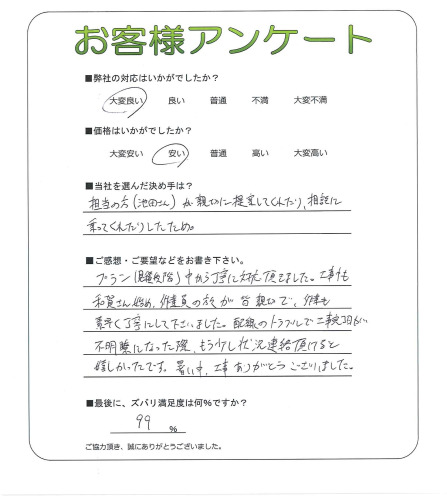 お客様アンケート
■弊社の対応はいかがでしたか？
大変良い 良い 普通 不満 大変不満
■価格はいかがでしたか？
大変安い 安い 普通 高い 大変高い
■当社を選んだ決め手は？
担当の方(池田さん)が親切に提案してくれたり、相談に
乗ってくれたりしたため。
■ご感想・ご要望などをお書き下さい。
プラン( 段階)中から丁寧に対応頂きました。工事も
和賀さん始め、作業員の方が皆親切で、作業も
素早く丁寧にして下さいました。配線のトラブルで工事終了日が
不明瞭になった際、もう少し状況連絡頂けると
嬉しかったです。暑い中、工事ありがとうございました。
■最後に、ズバリ満足度は何％ですか？
99 ％
ご協力頂き、誠にありがとうございました。